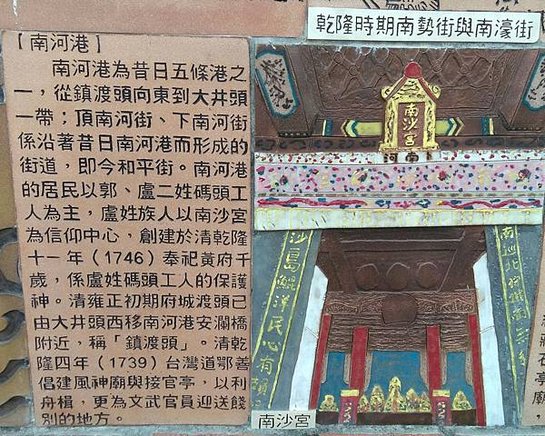 乾隆時期南勢街與南濠街
【南河港】
南河港為昔日五條港之
一，從鎮渡頭向東到大井頭
一帶；頂南河街、下南河街
係沿著昔日南河港而形成的
街道，即今和平街。南河港
的居民以郭、盧二姓碼頭工
人為主，盧姓族人以南沙宮
為信仰中心，創建於清乾隆
十一年（1746）奉祀黃府千
歲，係盧姓碼頭工人的保護
神。清雍正初期府城渡頭已
由大井頭西移南河港安瀾橋
附近，稱「鎮渡頭」。清乾
隆四年（1739）台灣道鄂善
倡建風神廟與接官亭，以利
舟楫，更為文武官員迎送餞
別的地方。
南沙宮
南河
南沙宮